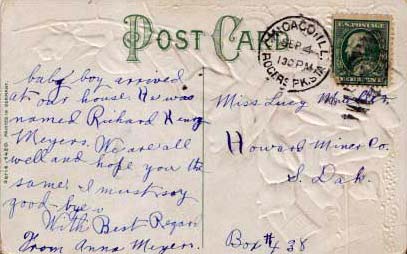 POST CARD
CHICAGO, ILL.
SEP 4
130 PM
ROGERS PK. STA.
U.S. POSTAGE
baby boy arrived
at our house. He was
named Richard Henry
Meyers. We are all
well and hope you the
same. I must say
good-bye.
With Best Regar
From Anna Meyers.
Miss Lucy
Howard Miner Co.
S. Dak.
Box #438
PRINTED IN GERMANY